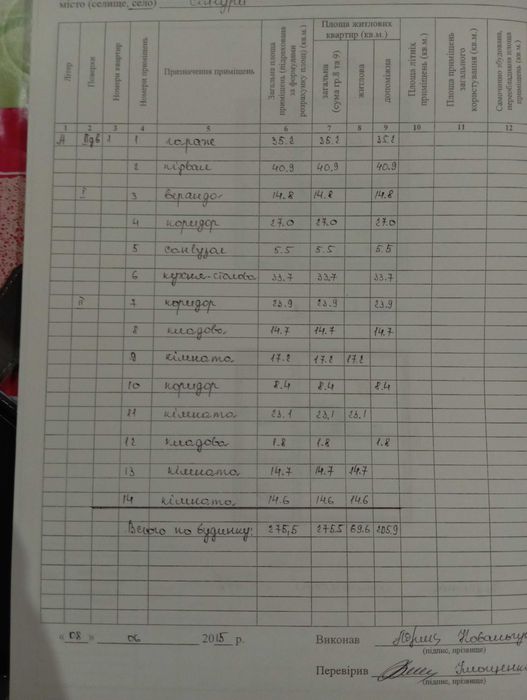 місто (селище, село)
Літер
Поверхи
Номери квартир
Номери приміщень
Призначення приміщень
Загальна площа приміщень (підрахована за формулами розрахунку площ) (кв.м.)
Площа житлових квартир (кв.м.)
загальна (сума гр.8 та 9)
житлова
допоміжна
Площа літніх приміщень (кв.м.)
Площа приміщень загального користування (кв.м.)
Самочинно збудована, переобладнана площа приміщень (кв.м.)
1 2 3 4 5 6 7 8 9 10 11 12
А Пдв 1 1 гараж 35.2 35.2 35.2
2 підвал 40,9 40,9 40.9
I 3 веранда 14.8 14.8 14.8
4 коридор 27.0 27.0 27.0
5 санвузол 5.5 5.5 5.5
6 кухня-столова 33.7 33.7 33.7
II 7 коридор 23.9 23.9 23.9
8 кладова 14.7 14.7 14.7
9 кімната 17.2 17.2 17.2
10 коридор 8.4 8.4 8.4
11 кімната 23.1 23,1 23.1
12 кладова 1.8 1.8 1.8
13 кімната 14.7 14.7 14.7
14 кімната 14.6 14.6 14.6
Всього по будинку: 275,5 275.5 69.6 205.9
" 08 " 06 2015 р.
Виконав
(підпис, прізвище)
Перевірив
(підпис, прізвище)